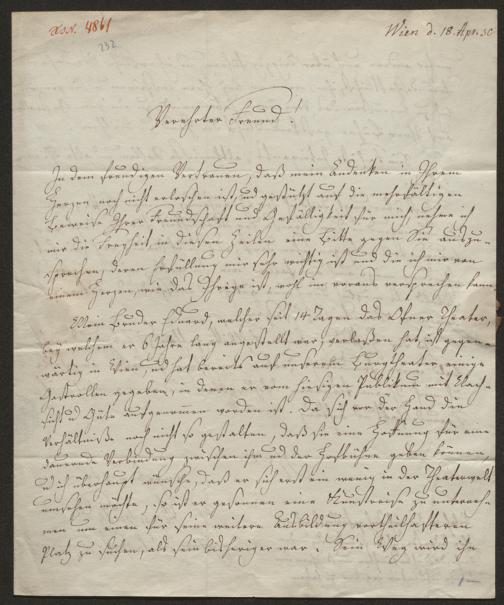 4861
232
Wien d. 18. Apr. 30
Verehrter Freund!
In dem freudigen Vertrauen, daß mein Andenken in Ihrem
Herzen noch nicht erloschen ist, und gestützt auf die mehrfältigen
Beweise Ihrer Freundschaft und Gefälligkeit für mich nehme ich
mir die Freyheit in diesen Zeilen eine Bitte gegen Sie auszu-
sprechen, deren Erfüllung mir sehr wichtig ist und die ich mir von
einem Herzen, wie das Ihrige ist, wohl im voraus versprechen kann.
Mein Bruder Eduard, welcher seit 14 Tagen das Ofner Theater,
bey welchem er 6 Jahre lang angestellt war, verlaßen hat, ist gegen-
wärtig in Wien und hat bereits auf unserem Burgtheater einige
Gastrollen gegeben, in denen er vom hiesigen Publikum mit Nach-
sicht und Güte aufgenommen worden ist. Da sich vor der Hand die
Verhältniße noch nicht so gestalten, daß sie eine Hoffnung für eine
dauernde Verbindung zwischen ihm und der Hofbühne geben können,
und ich überhaupt wünsche, daß er sich erst ein wenig in der Theaterwelt
umsehen möchte, so ist er gesonnen eine Kunstreise zu unterneh-
men um einen für seine weitere Ausbildung vortheilhafteren
Platz zu suchen, als sein bisheriger war. Sein Weg wird ihn